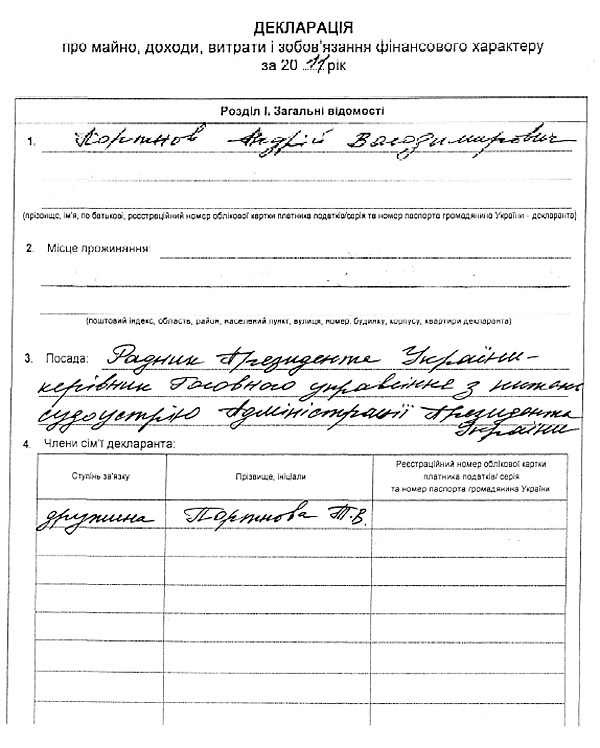 ДЕКЛАРАЦІЯ
про майно, доходи, витрати і зобов'язання фінансового характеру
за 20 11 рік
Розділ І. Загальні відомості
1. Портнов Андрій Володимирович
(прізвище, ім'я, по батькові, реєстраційний номер облікової картки платника податків/серія та номер паспорта громадянина України - декларанта)
2. Місце проживання:
(поштовий індекс, область, район, населений пункт, вулиця, номер: будинку, корпусу, квартири декларанта)
3. Посада: Радник Президента України-
керівник Головного управління з питань
судоустрію Адміністрації Президента
України
4. Члени сім'ї декларанта:
Ступінь зв'язку
Прізвище, ініціали
Реєстраційний номер облікової картки
платника податків/ серія
та номер паспорта громадянина України
дружина Портнова Т.В.